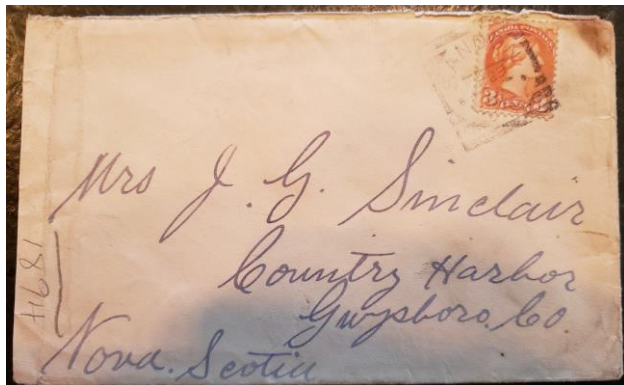 Mrs J. G. Sinclair
Country Harbor
Guysboro. Co.
Nova. Scotia